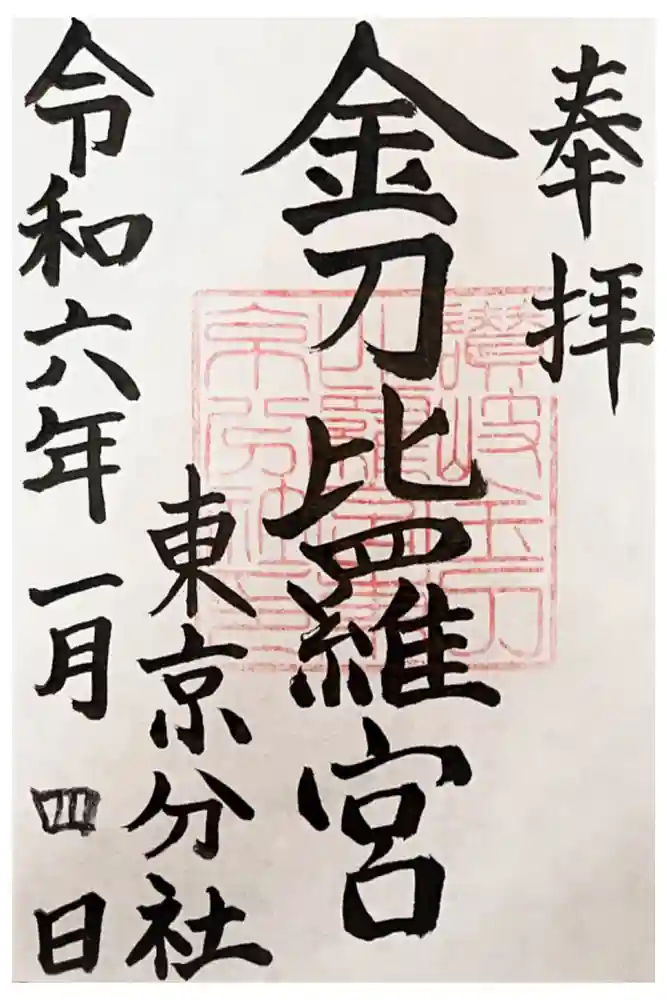 奉拝
金刀比羅宮
東京分社
令和六年一月四日